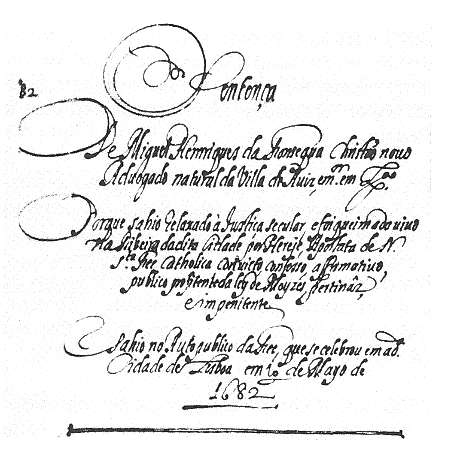 82
Sentença
De Miguel Henriques da Fonsequa Christão novo
Advogado natural da Villa de Avis, e m.or em Lx.a
Porque sahio relaxado à Justiça secular, e foi queimado vivo
na Ribeira da dita Cidade por Hereje, Apostata de N.
S.ta Fee Catholica convicto confesso, affirmativo,
publico profitente da ley de Moyzes, Pertinâz,
e impenitente
Sahio no Auto publico da Fee, que se celebrou em a d.a
Cidade de Lisboa em 10 de Mayo de
1682